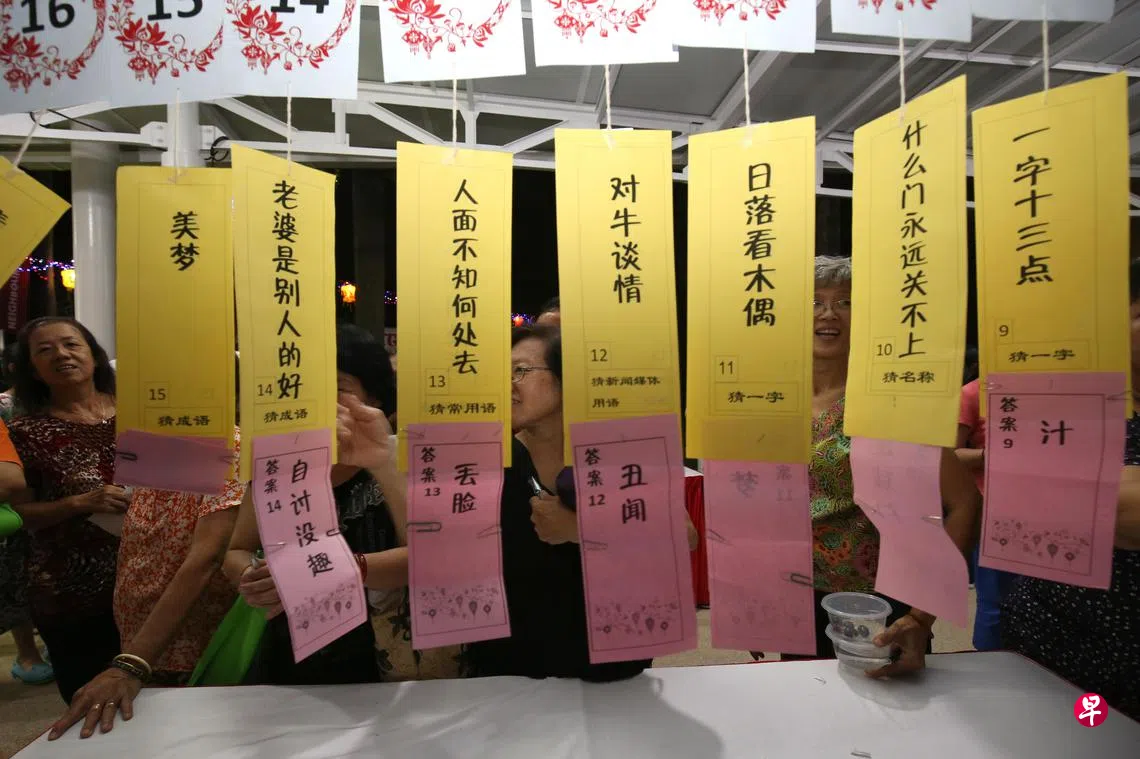 16
15
14
美梦
15
猜成语
老婆是别人的好
14
猜成语
答案
14
自讨没趣
人面不知何处去
13
猜常用语
答案
13
丢脸
对牛谈情
12
猜新闻媒体
用语
答案
12
丑闻
日落看木偶
11
猜一字
答案
11
梦
什么门永远关不上
10
猜名称
一字十三点
9
猜一字
答案
9
汁
早